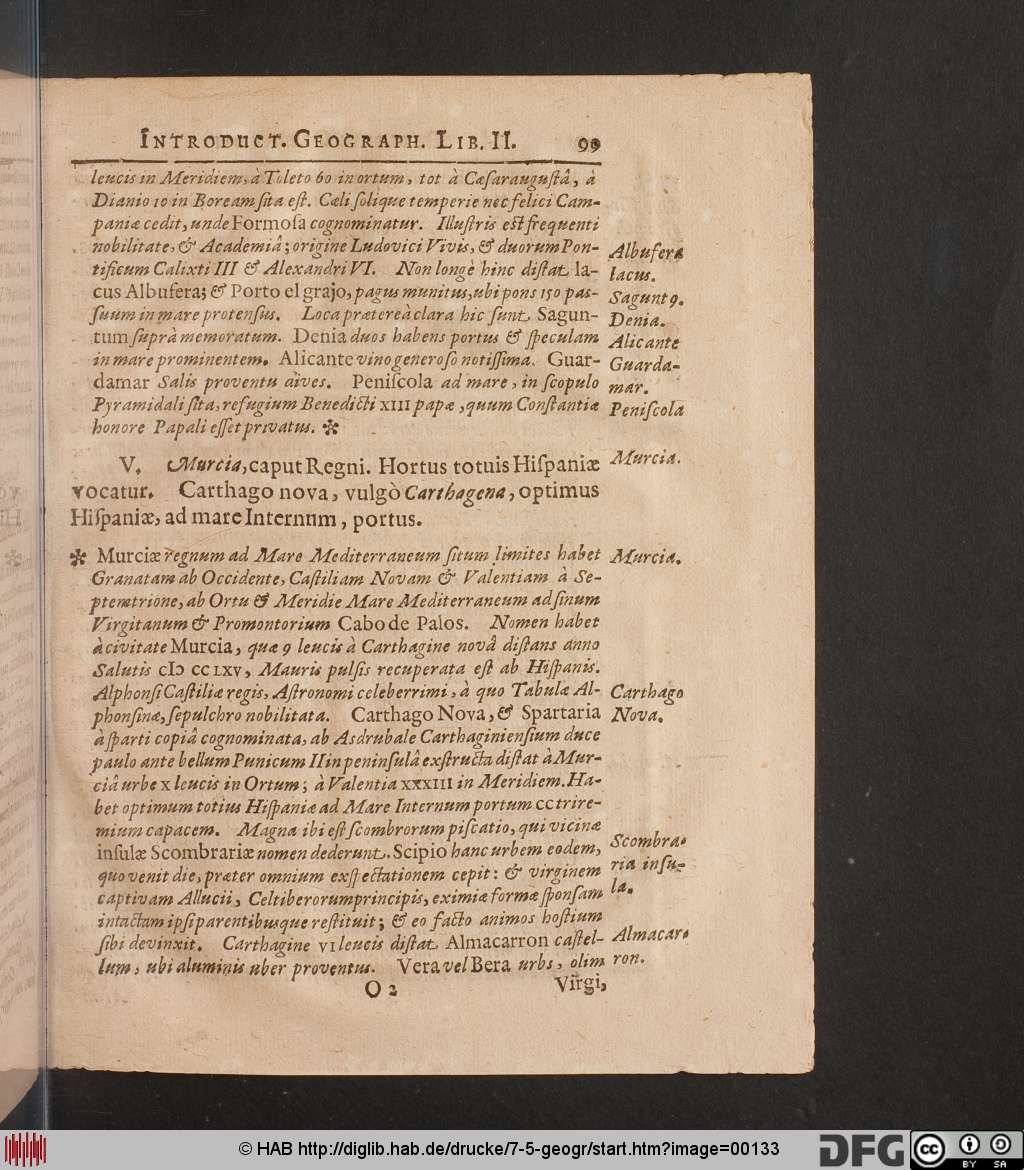 INTRODUCT. GEOGRAPH. LIB. II. 99
leucis in Meridiem, à Toleto 60 in ortum, tot à Cæsaraugustâ, à
Dianio 10 in Boream sita est. Cæli solique temperie nec felici Cam-
paniæ cedit, unde Formosa cognominatur. Illustris est frequenti
nobilitate, & Academiâ; origine Ludovici Vivis, & duorum Pon-
tificum Calixti III & Alexandri VI. Non longè hinc distat la-
cus Albufera; & Porto el grajo, pagus munitus, ubi pons 150 pas-
suum in mare protensus. Loca prætereà clara hic sunt Sagun-
tum suprà memoratum. Denia duos habens portus & speculam
in mare prominentem. Alicante vino generoso notissima. Guar-
damar Salis proventu dives. Peniscola ad mare, in scopulo
Pyramidali sita, refugium Benedicti XIII papæ, quum Constantiæ
honore Papali esset privatus. ✼
Albufera
lacus.
Sagunt9.
Denia.
Alicante
Guarda-
mar.
Peniscola
V. Murcia, caput Regni. Hortus totuis Hispaniæ
vocatur. Carthago nova, vulgò Carthagena, optimus
Hispaniæ, ad mare Internum, portus.
Murcia.
✼ Murciæ regnum ad Mare Mediterraneum situm limites habet
Granatam ab Occidente, Castiliam Novam & Valentiam à Se-
ptemtrione, ab Ortu & Meridie Mare Mediterraneum ad sinum
Virgitanum & Promontorium Cabo de Palos. Nomen habet
à civitate Murcia, quæ 9 leucis à Carthagine novâ distans anno
Salutis cIↃ CC LXV, Mauris pulsis recuperata est ab Hispanis.
Alphonsi Castiliæ regis, Astronomi celeberrimi, à quo Tabulæ Al-
phonsinæ, sepulchro nobilitata. Carthago Nova, & Spartaria
à sparti copiâ cognominata, ab Asdrubale Carthaginiensium duce
paulo ante bellum Punicum II in peninsulâ exstructa distat à Mur-
ciâ urbe X leucis in Ortum; à Valentia XXXIII in Meridiem. Ha-
bet optimum totius Hispaniæ ad Mare Internum portum CC trire-
mium capacem. Magna ibi est scombrorum piscatio, qui vicinæ
insulæ Scombrariæ nomen dederunt. Scipio hanc urbem eodem,
quo venit die, præter omnium exspectationem cepit: & virginem
captivam Allucii, Celtiberorum principis, eximiæ formæ sponsam
intactam ipsi parentibusque restituit; & eo facto animos hostium
sibi devinxit. Carthagine VI leucis distat Almacarron castel-
lum, ubi aluminis uber proventus. Vera vel Bera urbs, olim
Murcia.
Carthago
Nova.
Scombra-
ria insu-
la.
Almacar-
ron.
O 2 Virgi,
© HAB http://diglib.hab.de/drucke/7-5-geogr/start.htm?image=00133
DFG
cc BY SA